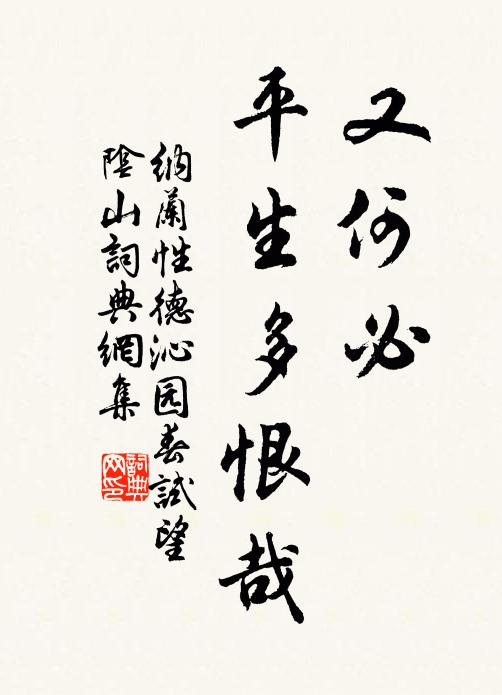 又何必
平生多恨哉
納蘭性德沁园春試望
陰山詞典網集
詞典
网印